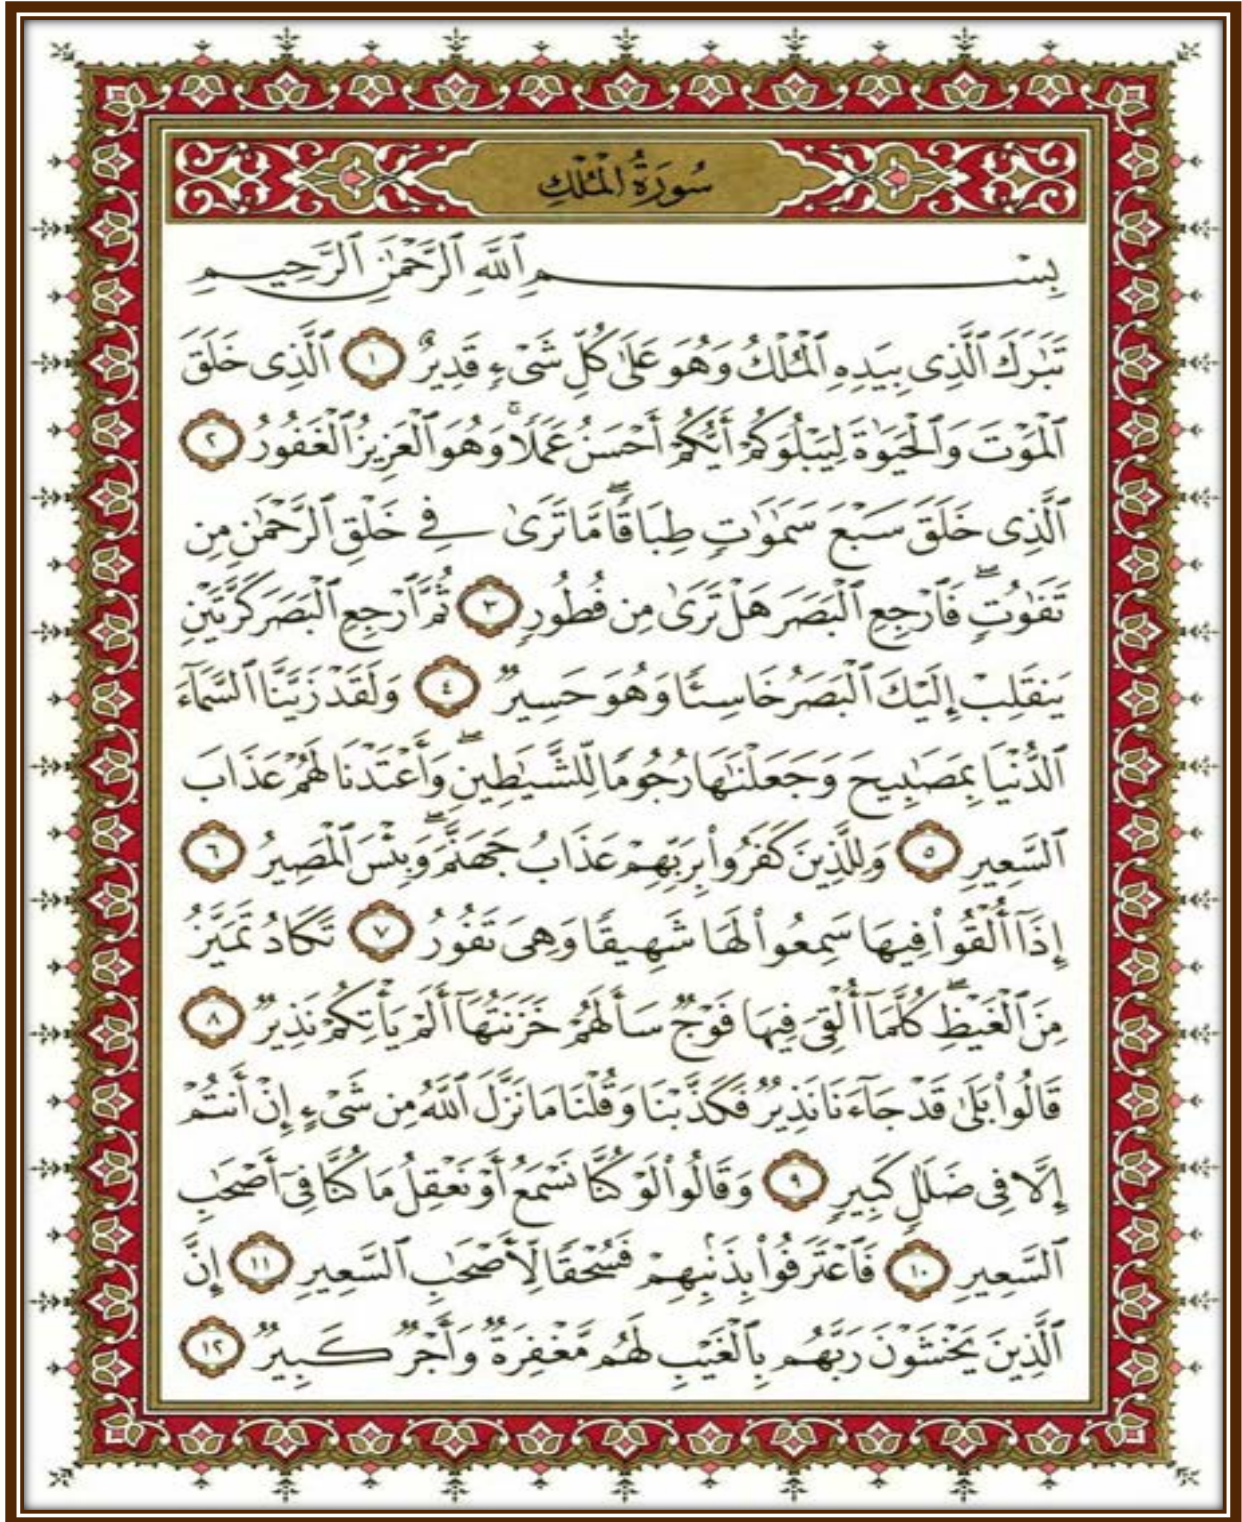 سُورَةُ الْمُلْكِ
بِسْمِ ٱللَّهِ ٱلرَّحْمَٰنِ ٱلرَّحِيمِ
تَبَٰرَكَ ٱلَّذِى بِيَدِهِ ٱلْمُلْكُ وَهُوَ عَلَىٰ كُلِّ شَىْءٍ قَدِيرٌ ١ ٱلَّذِى خَلَقَ
ٱلْمَوْتَ وَٱلْحَيَوٰةَ لِيَبْلُوَكُمْ أَيُّكُمْ أَحْسَنُ عَمَلًا ۚ وَهُوَ ٱلْعَزِيزُ ٱلْغَفُورُ ٢
ٱلَّذِى خَلَقَ سَبْعَ سَمَٰوَٰتٍ طِبَاقًا ۖ مَّا تَرَىٰ فِى خَلْقِ ٱلرَّحْمَٰنِ مِن
تَفَٰوُتٍ ۖ فَٱرْجِعِ ٱلْبَصَرَ هَلْ تَرَىٰ مِن فُطُورٍ ٣ ثُمَّ ٱرْجِعِ ٱلْبَصَرَ كَرَّتَيْنِ
يَنقَلِبْ إِلَيْكَ ٱلْبَصَرُ خَاسِئًا وَهُوَ حَسِيرٌ ٤ وَلَقَدْ زَيَّنَّا ٱلسَّمَآءَ
ٱلدُّنْيَا بِمَصَٰبِيحَ وَجَعَلْنَٰهَا رُجُومًا لِّلشَّيَٰطِينِ ۖ وَأَعْتَدْنَا لَهُمْ عَذَابَ
ٱلسَّعِيرِ ٥ وَلِلَّذِينَ كَفَرُوا۟ بِرَبِّهِمْ عَذَابُ جَهَنَّمَ ۖ وَبِئْسَ ٱلْمَصِيرُ ٦
إِذَآ أُلْقُوا۟ فِيهَا سَمِعُوا۟ لَهَا شَهِيقًا وَهِىَ تَفُورُ ٧ تَكَادُ تَمَيَّزُ
مِنَ ٱلْغَيْظِ ۖ كُلَّمَآ أُلْقِىَ فِيهَا فَوْجٌ سَأَلَهُمْ خَزَنَتُهَآ أَلَمْ يَأْتِكُمْ نَذِيرٌ ٨
قَالُوا۟ بَلَىٰ قَدْ جَآءَنَا نَذِيرٌ فَكَذَّبْنَا وَقُلْنَا مَا نَزَّلَ ٱللَّهُ مِن شَىْءٍ إِنْ أَنتُمْ
إِلَّا فِى ضَلَٰلٍ كَبِيرٍ ٩ وَقَالُوا۟ لَوْ كُنَّا نَسْمَعُ أَوْ نَعْقِلُ مَا كُنَّا فِىٓ أَصْحَٰبِ
ٱلسَّعِيرِ ١٠ فَٱعْتَرَفُوا۟ بِذَنۢبِهِمْ فَسُحْقًا لِّأَصْحَٰبِ ٱلسَّعِيرِ ١١ إِنَّ
ٱلَّذِينَ يَخْشَوْنَ رَبَّهُم بِٱلْغَيْبِ لَهُم مَّغْفِرَةٌ وَأَجْرٌ كَبِيرٌ ١٢